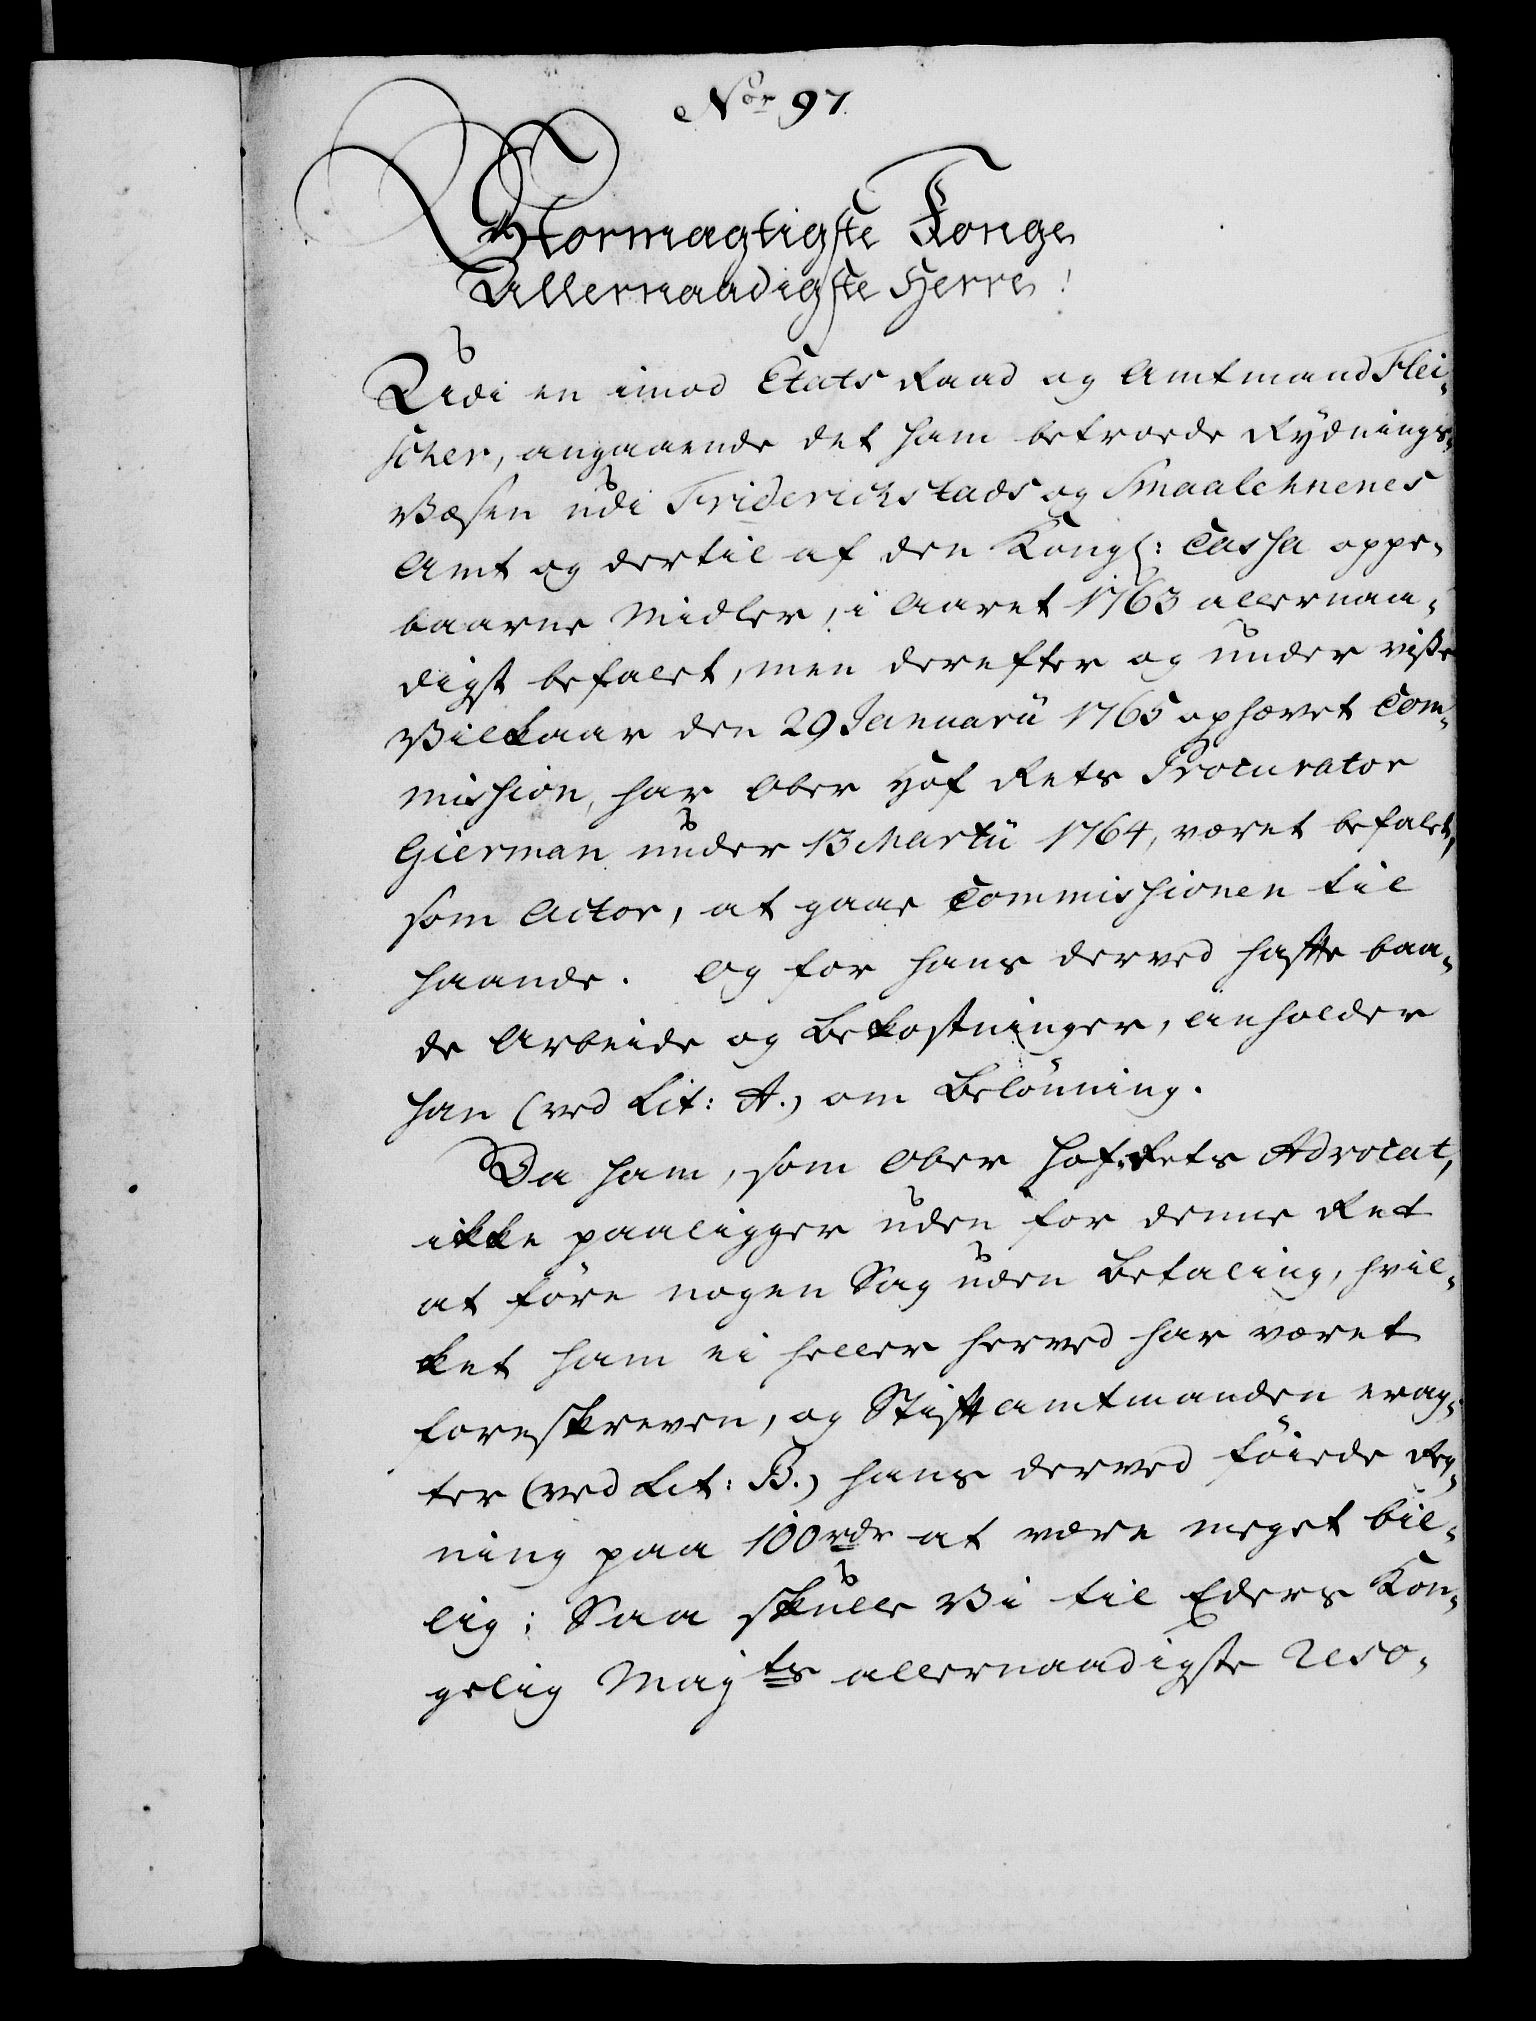 Nor 97.
Stormægtigste Konge
Allernaadigste Herre!
Udi en imod Etats Raad og Amtmand Flei-
scher, angaaende det ham betroede Rydnings-
Væsen udi Friderichstads og Smaalehnenes
Amt og dertil af den Kongl: Cassa oppe-
baarne Midler, i Aaret 1763 allernaa-
digst befalet, men derefter og under visse
Vilkaar den 29 Januarii 1765 ophævet Com-
mission, har Ober Hof Rets Procurator
Gierman under 13 Martii 1764, været befalet,
som Actor, at gaae Commissionen til
haande. Og for hans derved hafte baa-
de Arbeide og Bekostninger, anholder
han (ved Lit: A.) om Belönning.
Da ham, som Ober Hof-Rets Advocat,
ikke paaligger uden for denne Ret
at före nogen Sag uden Betaling, hvil-
ket ham ei heller herved har været
foreskreven, og Stiftamtmanden erag-
ter (ved Lit: B.) hans derved föiede Reg-
ning paa 100 rdr at være meget bil-
lig; Saa skulle Vi til Eders Kon-
gelig Majts allernaadigste Reso-